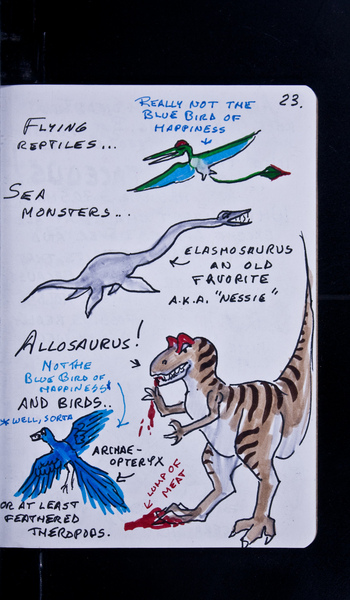 23.
REALLY NOT THE
BLUE BIRD OF
HAPPINESS
FLYING
REPTILES...
SEA
MONSTERS...
ELASMOSAURUS
AN OLD
FAVORITE
A.K.A. "NESSIE"
ALLOSAURUS!
NOT THE
BLUE BIRD OF
HAPPINESS!
AND BIRDS..
* WELL, SORTA
ARCHAE-
OPTERYX
LUMP OF
MEAT
OR AT LEAST
FEATHERED
THEROPODS.